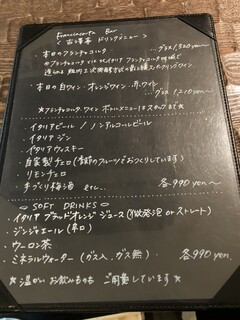 Franciacorta Bar
< 古澤亭 ドリンクメニュー >
・本日のフランチャコルタ ...グラス/1320yen〜
※フランチャコルタとは イタリア フランチャコルタ地域で
造られる 瓶内二次発酵方式の最上級スパークリングワイン
・本日の白ワイン・オレンジワイン・赤ワイン
...グラス 1210yen〜
★フランチャコルタ・ワイン ボトルメニューはスタッフまで★
・イタリアビール / ノンアルコールビール
・イタリアジン
・イタリアウィスキー
・自家製チェロ (季節のフルーツでおつくりしています)
・リモンチェロ
・手づくり梅酒 etc.. 各990yen〜
○ SOFT DRINKS ○
・イタリア ブラッドオレンジジュース (微発泡orストレート)
・ジンジャエール (辛口)
・ウーロン茶
・ミネラルウォーター (ガス入、ガス無) 各990yen
★温かいお飲みものも ご用意しています★